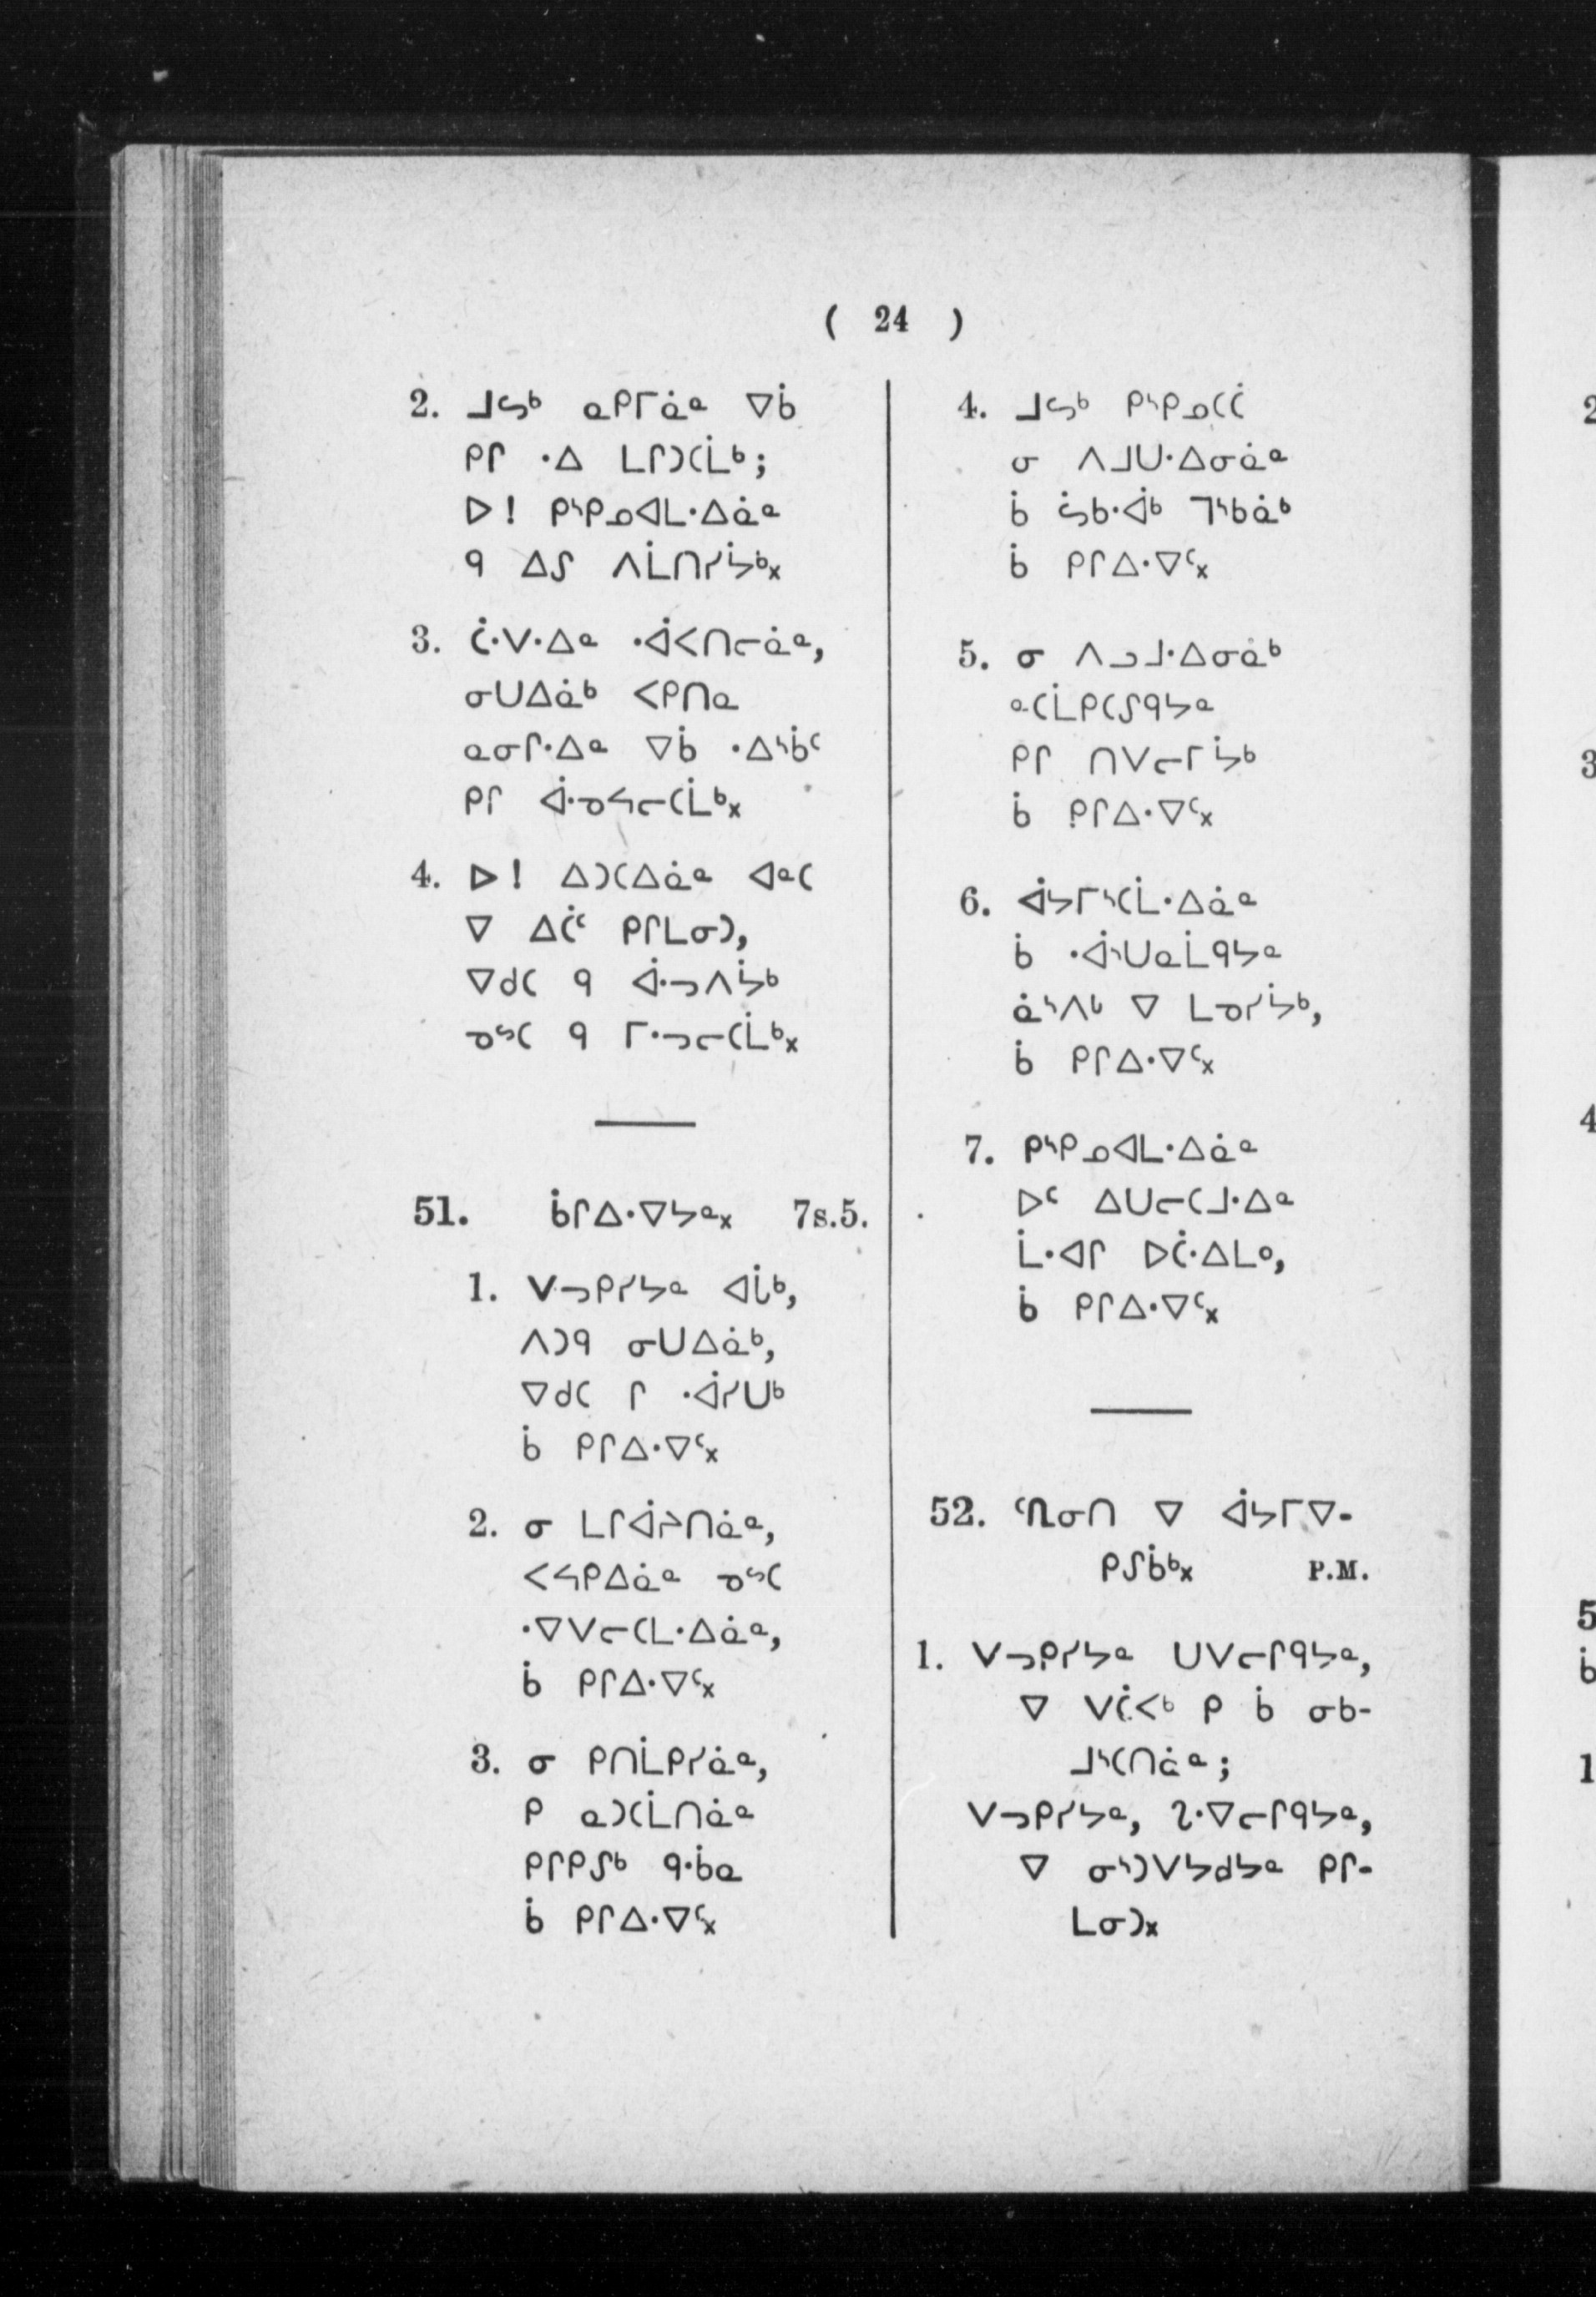 ( 24 )
2. ᒧᔕᒃ ᓇᑭᒥᓈᓐ ᐁᑳ
ᑭᒋ ᐧᐃ ᒪᒋᑐᑕᒫᒃ;
ᐅ! ᑭᔅᑭᓄᐊᒪᐧᐃᓈᓐ
ᑫ ᐃᔑ ᐱᒫᑎᓯᔮᒃ᙮
3. ᑖᐧᐯᐧᐃᓐ ᐧᐋᐸᑎᓕᓈᓐ,
ᓂᑌᐃᓈᒃ ᐸᑭᑎᓇ
ᓇᓂᒋᐧᐃᓐ ᐁᑳ ᐧᐃᔅᑳᑦ
ᑭᒋ ᐋᐧᓀᓴᓕᑕᒫᒃ᙮
4. ᐅ! ᐃᑐᑕᐃᓈᓐ ᐊᓐᑕ
ᐁ ᐃᑖᑦ ᑭᒋᒪᓂᑐ,
ᐁᑯᑕ ᑫ ᐋᐧᓗᐱᔮᒃ
ᓀᔥᑕ ᑫ ᒥᐧᓗᓕᑕᒫᒃ᙮
51. ᑳᒋᐃᐧᐁᔭᓐ᙮ 7s.5.
1. ᐯᓗᑭᓯᔭᓐ ᐊᔮᒃ,
ᐱᑐᑫ ᓂᑌᐃᓈᒃ,
ᐁᑯᑕ ᒋ ᐧᐋᓯᑌᒃ
ᑳ ᑭᒋᐃᐧᐁᑦ᙮
2. ᓂ ᒪᒋᐋᔨᑎᓈᓐ,
ᐸᓴᑭᐃᓈᓐ ᓀᔥᑕ
ᐧᐁᐯᓕᑕᒪᐧᐃᓈᓐ,
ᑳ ᑭᒋᐃᐧᐁᑦ᙮
3. ᓂ ᑭᑎᒫᑭᓯᓈᓐ,
ᑭ ᓇᑐᑕᒫᑎᓈᓐ
ᑭᒋᑭᔑᒃ ᑫᐧᑳᓇ
ᑳ ᑭᒋᐃᐧᐁᑦ᙮
4. ᒧᔕᒃ ᑭᔅᑭᓄᑕᑖ
ᓂ ᐱᒧᑌᐧᐃᓂᓈᓐ
ᑳ ᔖᑲᐧᐋᒃ ᒣᔅᑲᓈᒃ
ᑳ ᑭᒋᐃᐧᐁᑦ᙮
5. ᓂ ᐱᓗᒧᐧᐃᓂᓈᒃ
ᓇᑕᒫᑭᑕᔑᑫᔭᓇ
ᑭᒋ ᑎᐯᓕᒥᔮᒃ
ᑳ ᑭᒋᐃᐧᐁᑦ᙮
6. ᐋᔭᒥᔅᑕᒫᐧᐃᓈᓐ
ᑳ ᐧᐋᔅᑌᓇᒫᑫᔭᓐ
ᓈᔅᐱᒡ ᐁ ᒪᓀᓯᔮᒃ,
ᑳ ᑭᒋᐃᐧᐁᑦ᙮
7. ᑭᔅᑭᓄᐊᒪᐧᐃᓈᓐ
ᐅᑦ ᐃᑌᓕᑕᒧᐧᐃᓐ
ᒫᐧᐊᒋ ᐅᑖᐧᐃᒪᐤ,
ᑳ ᑭᒋᐃᐧᐁᑦ᙮
ᐁ ᐋᔭᒥᐁ-
ᑭᔑᑳᒃ᙮ P.M.
1. ᐯᓗᑭᓯᔭᓐ ᑌᐯᓕᒋᑫᔭᓐ,
ᐁ ᐯᑖᐸᒃ ᑭ ᑳ ᓂᑲ-
ᒧᔅᑕᑎᓈᓐ;
ᐯᓗᑭᓯᔭᓐ, ᔐᐧᐁᓕᒋᑫᔭᓐ,
ᐁ ᓂᔅᑐᐯᔭᑯᔭᓐ ᑭᒋ-
ᒪᓂᑐ᙮